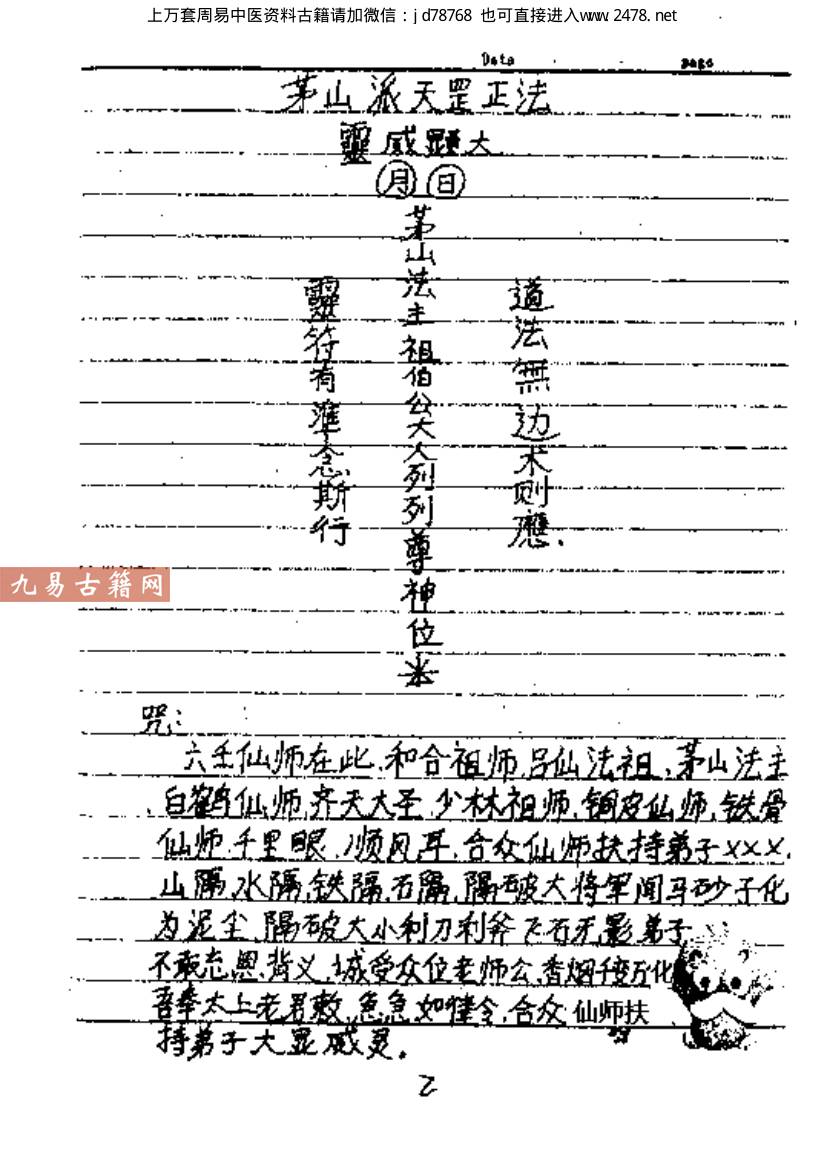 上万套周易中医资料古籍请加微信：jd78768 也可直接进入www.2478.net
Data
page
茅山派天罡正法
靈威顯大
月 日
道法無边术则應.
茅山法主祖伯公大人列列尊神位
靈符有準念斯行
九易古籍网
咒:
六壬仙师在此,和合祖师,吕仙法祖,茅山法主
白鹤仙师,齐天大圣,少林祖师,铜皮仙师,铁骨
仙师,千里眼,顺风耳,合众仙师扶持弟子×××.
山隔,水隔,铁隔,石隔,隔破大将军闻马砂子化
为泥尘,隔破大小利刀利斧飞石无影弟子
不敢忘恩背义,诚受众位老师公,香烟千变万化
吾奉太上老君敕,急急如律令,合众仙师扶
持弟子大显威灵.
2